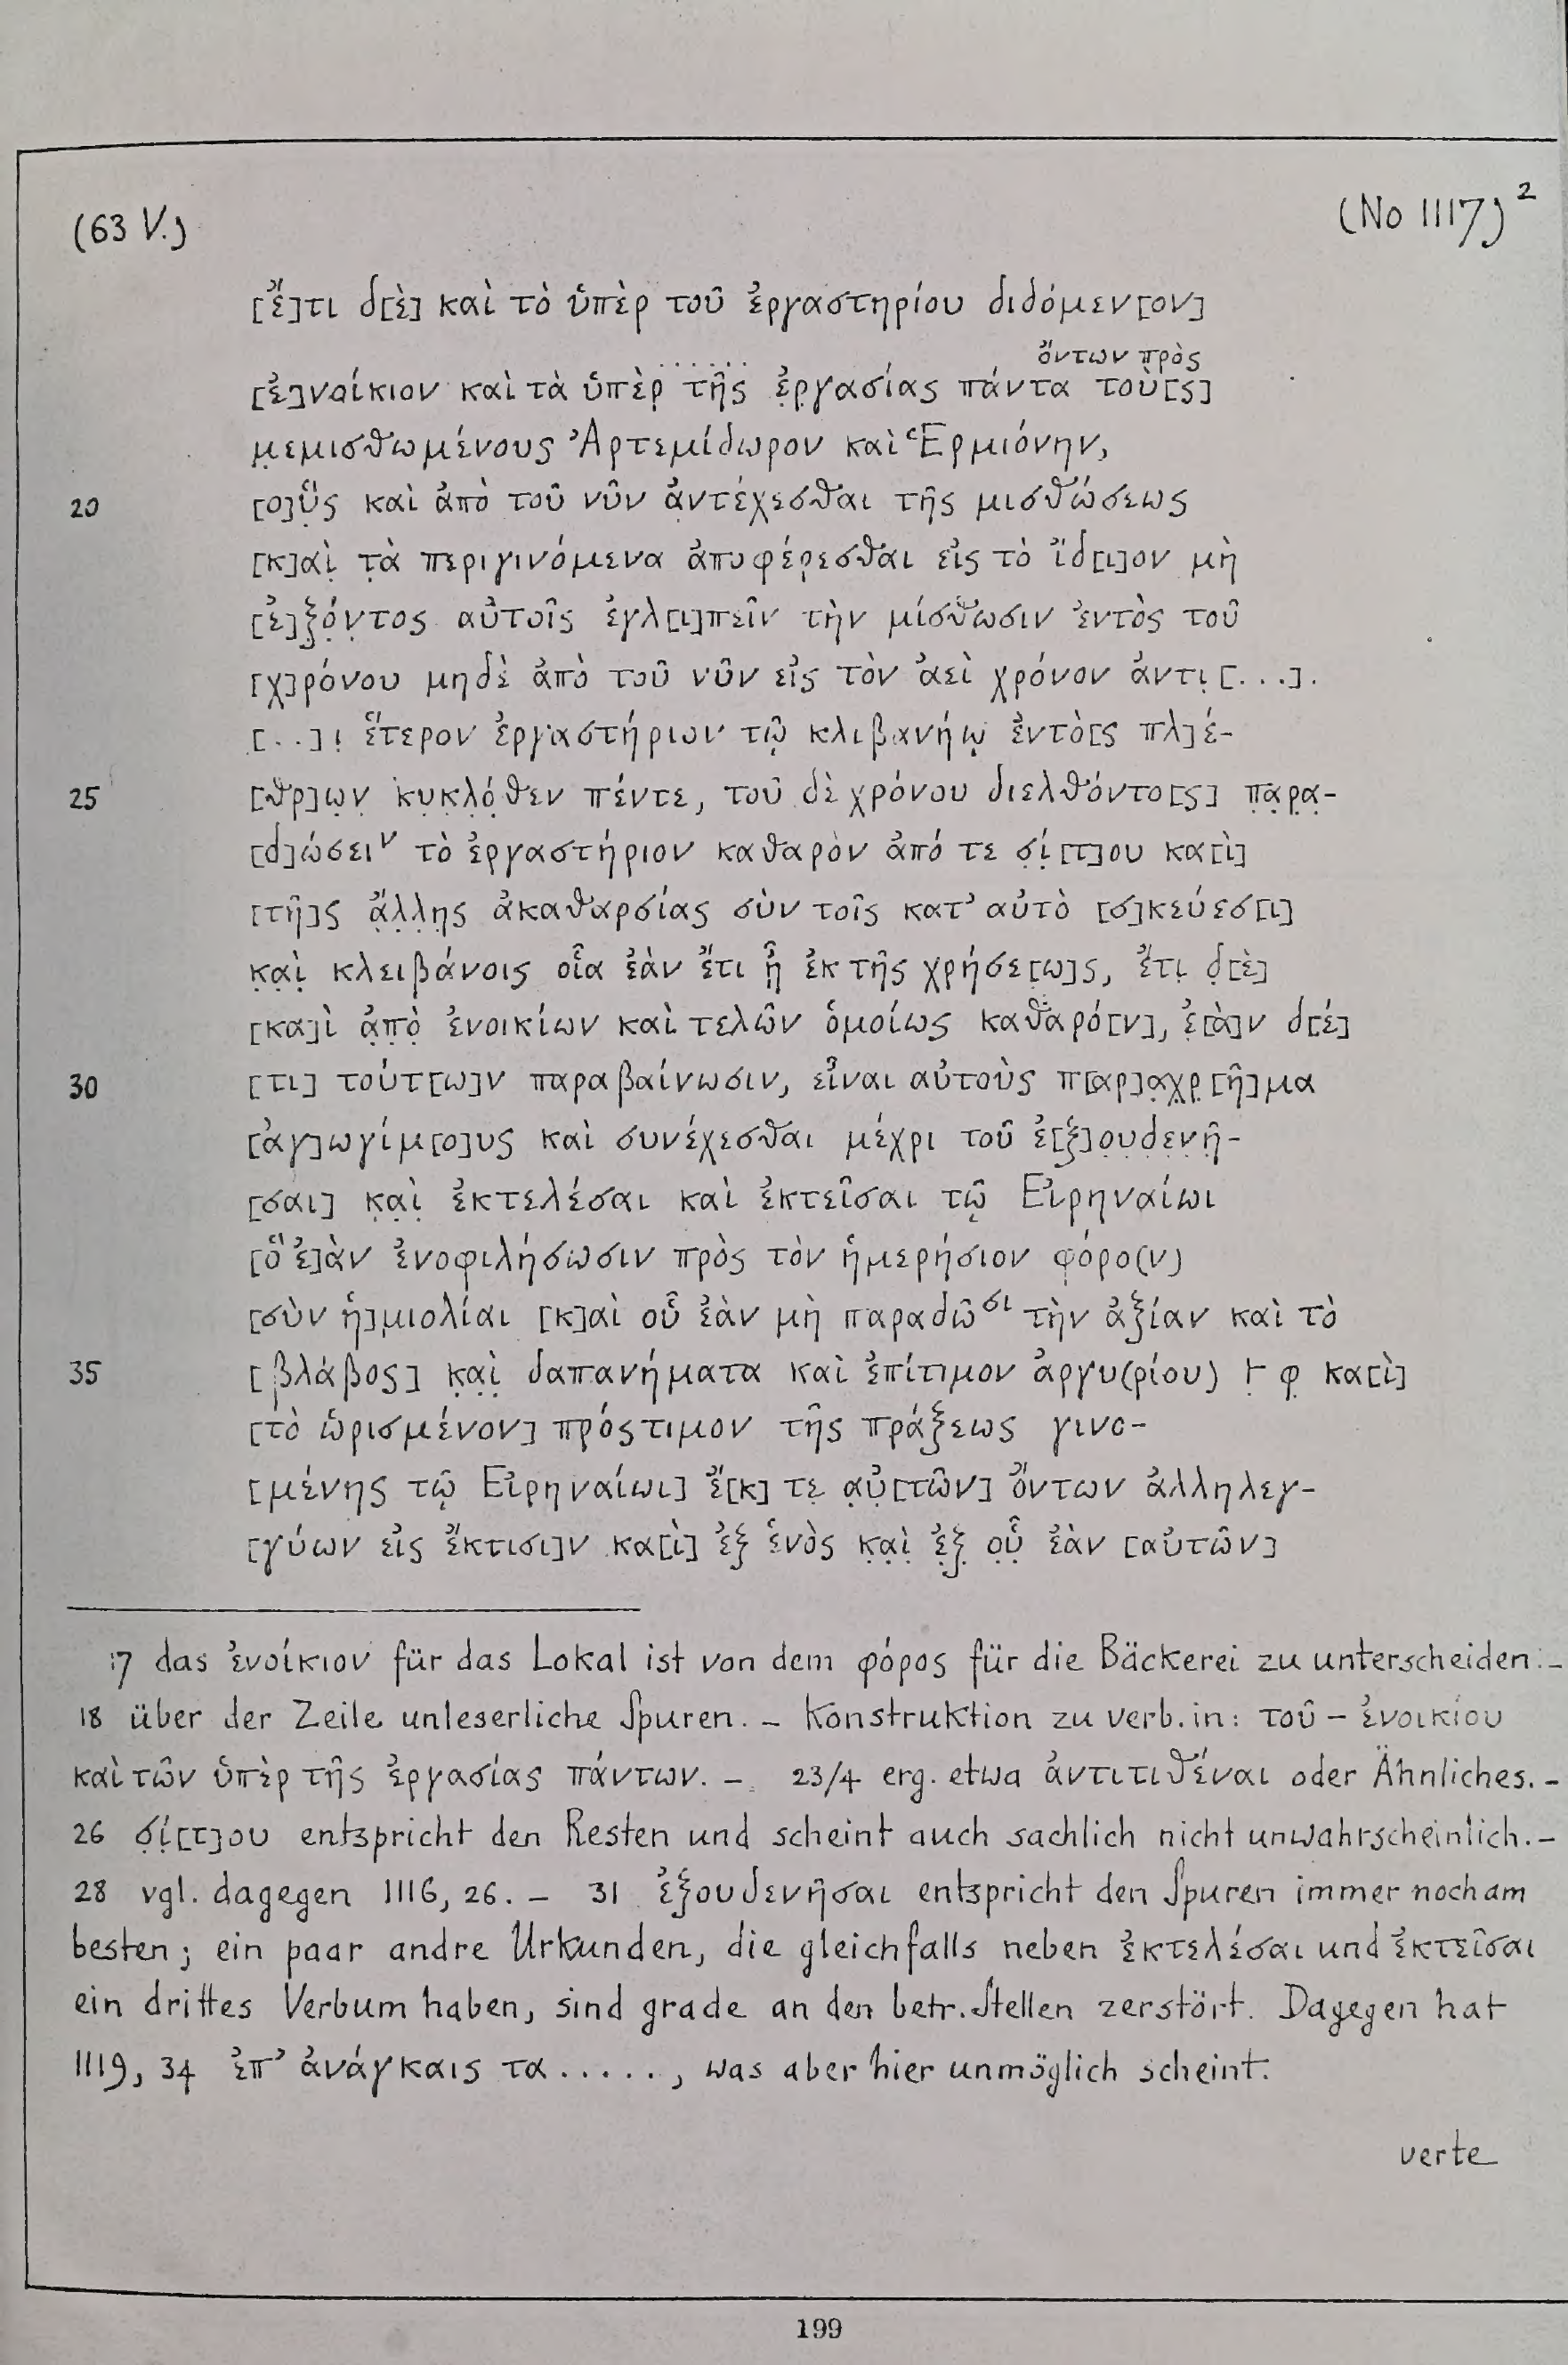 (63 V.)
(No 1117)²
[ἔ]τι δ[ὲ] καὶ τὸ ὑπὲρ τοῦ ἐργαστηρίου διδόμεν[ον]
. . . . . . ὄντων πρὸς
[ἐ]νοίκιον καὶ τὰ ὑπὲρ̣ τ̣ῆ̣ς̣ ἐ̣ρ̣γασίας πάντα τοὺ[ς]
μ̣εμισθωμένους Ἀρτεμίδωρον καὶ Ἑρμιόνην,
20 [ο]ὓ̣ς καὶ ἀπὸ τοῦ νῦν ἀ̣ντέχεσθαι τῆς μισθώσεως
[κ]αὶ̣ τ̣ὰ περιγινόμενα ἀποφέρ̣εσθαι εἰς τὸ ἴδ[ι]ον μὴ
[ἐ]ξ̣ό̣ν̣τος αὐτοῖς ἐγλ[ι]πεῖν τὴν μίσθωσιν ἐντὸς τοῦ
[χ]ρόνου μηδὲ ἀπὸ τοῦ νῦν εἰς τὸν ἀεὶ χρόνον ἀντι̣[. . .].
[. .]ι̣ ἕτερον ἐργαστήριον τῷ κλιβανήῳ ἐντὸ[ς πλ]έ-
25 [θρ]ω̣ν̣ κ̣υ̣κ̣λό̣θεν πέντε, τοῦ δὲ χρόνου διελθόντο[ς] π̣α̣ρ̣α̣-
[δ]ώσειν τὸ ἐργαστήριον καθαρὸν ἀπό τε σ̣ί̣[τ]ου κα[ὶ]
[τῆ]ς ἄ̣λ̣λ̣η̣ς ἀκαθαρσίας σὺν τοῖς κατ’ αὐτὸ [σ]κεύεσ[ι]
κ̣α̣ὶ̣ κλειβάνοις οἷα ἐὰν ἔτι ᾖ ἐκ τῆς χρήσε[ω]ς, ἔτι̣ δ̣[ὲ]
[κα]ὶ ἀ̣π̣ὸ̣ ἐνοικίων καὶ τελῶν ὁμοίως καθαρό[ν], ἐ̣[ὰ]ν δ[έ]
30 [τι] τούτ[ω]ν παραβαίνωσιν, εἶναι αὐτοὺς π[αρ]α̣χ̣ρ̣[ῆ]μα
[ἀγ]ωγίμ[ο]υς καὶ συνέχεσθαι μέχρι τοῦ ἐ[ξ]ο̣υ̣δ̣ε̣ν̣ῆ̣-
[σαι] κ̣α̣ὶ̣ ἐκτελέσαι καὶ ἐκτεῖσαι τῷ Εἰρηναίωι
[ὃ ἐ]ὰν ἐνοφιλήσωσιν πρὸς τὸν ἡμερήσιον φόρο(ν)
[σὺν ἡ]μιολίαι [κ]αὶ οὗ ἐὰν μὴ παραδῶσι τὴν ἀξίαν καὶ τὸ
35 [βλάβος] κ̣α̣ὶ̣ δαπανήματα καὶ ἐπίτιμον ἀργυ(ρίου) ⊢ φ̣ κα[ὶ]
[τὸ ὡρισμένον] πρόστιμον τῆς πράξεως γινο-
[μένης τῷ Εἰρηναίωι] ἔ[κ] τε̣ α̣ὐ̣[τῶν] ὄντων ἀλληλεγ-
[γύων εἰς ἔκτισι]ν κα[ὶ] ἐξ ἑνὸς κ̣α̣ὶ̣ ἐ̣ξ̣ ο̣ὗ̣ ἐὰν [αὐτῶν]
17 das ἐνοίκιον für das Lokal ist von dem φόρος für die Bäckerei zu unterscheiden. –
18 über der Zeile unleserliche Spuren. – Konstruktion zu verb. in: τοῦ – ἐνοικίου
καὶ τῶν ὑπὲρ τῆς ἐργασίας πάντων. – 23/4 erg. etwa ἀντιτιθέναι oder Ähnliches. –
26 σ̣ί̣[τ]ου entspricht den Resten und scheint auch sachlich nicht unwahrscheinlich. –
28 vgl. dagegen 1116, 26. – 31 ἐξουδενῆσαι entspricht den Spuren immer noch am
besten; ein paar andre Urkunden, die gleichfalls neben ἐκτελέσαι und ἐκτεῖσαι
ein drittes Verbum haben, sind grade an den betr. Stellen zerstört. Dagegen hat
1119, 34 ἐπ’ ἀνάγκαις τα . . . . ., was aber hier unmöglich scheint.
verte
199